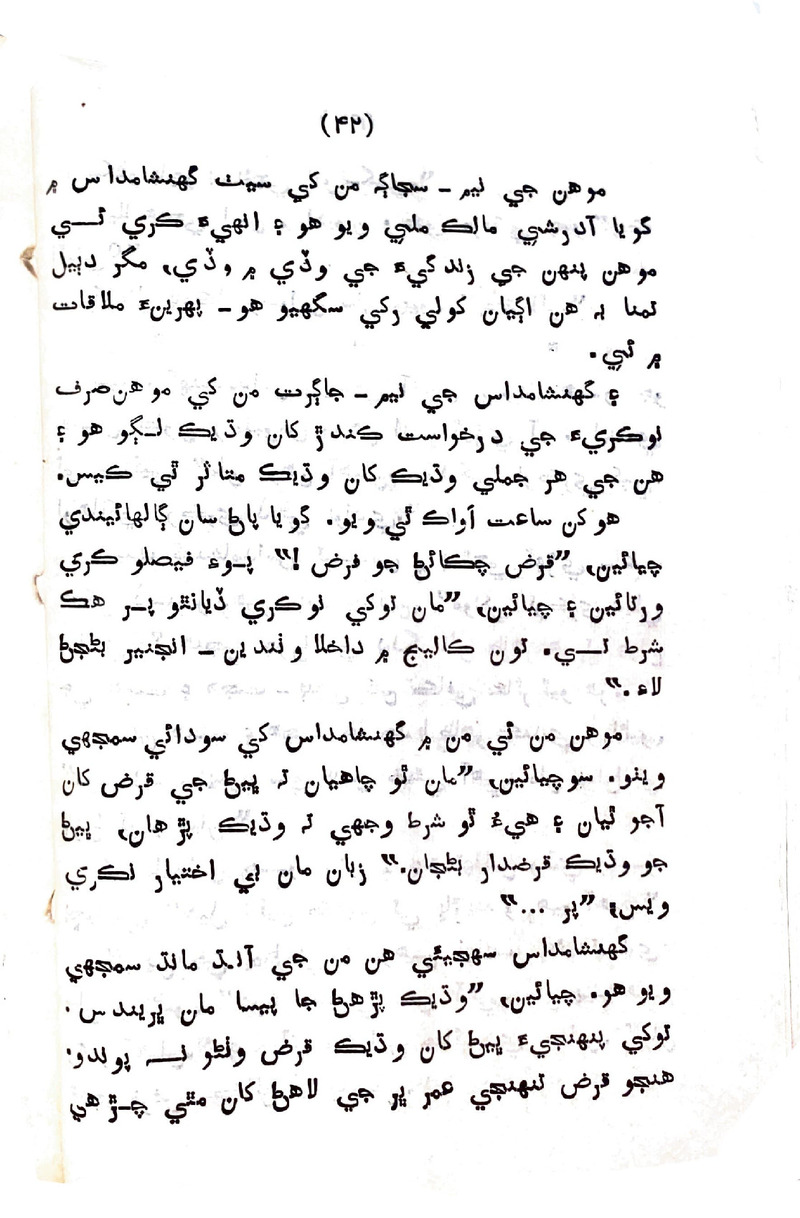 (۴۲)
موهن جي نيم – سڄاڳ من کي سيٺ گهنشامداس ۾
گويا آدرشي مالڪ ملي ويو هو ۽ انهيءَ ڪري ئي
موهن پنهن جي زندگيءَ جي وڏي ۾ وڏي، مگر دٻيل
تمنا به هن اڳيان کولي رکي سگهيو هو – پهرينءَ ملاقات
۾ ئي.
۽ گهنشامداس جي نيم – جاڳرت من کي موهن صرف
نوڪريءَ جي درخواست ڪندڙ کان وڌيڪ لڳو هو ۽
هن جي هر جملي وڌيڪ کان وڌيڪ متاثر ٿي ڪيس.
هو کن ساعت اَواڪ ٿي ويو. گويا پاڻ سان ڳالهائيندي
چيائين، ”قرض چڪائڻ جو فرض !“ پوءِ فيصلو ڪري
ورتائين ۽ چيائين، ”مان توکي نوڪري ڏيانٿو پر هڪ
شرط تي. تون ڪاليج ۾ داخلا وٺندين – انجنير بڻجڻ
لاءِ.“
موهن من ئي من ۾ گهنشامداس کي سودائي سمجهي
ويٺو. سوچيائين، ”مان ٿو چاهيان ته ڀيڻ جي قرض کان
آجو ٿيان ۽ هيءُ ٿو شرط وجهي ته وڌيڪ پڙهان، ڀيڻ
جو وڌيڪ قرضدار بڻجان.“ زبان مان بي اختيار نڪري
ويس؛ ”پر ...“
گهنشامداس سهجيئي هن من جي آنڌ مانڌ سمجهي
ويو هو. چيائين، ”وڌيڪ پڙهڻ جا پيسا مان ڀريندس.
توکي پنهنجيءَ ڀيڻ کان وڌيڪ قرض وٺڻو نه پوندو.
هنجو قرض تنهنجي عمر ڀر جي لاهڻ کان مٿي چڙهي